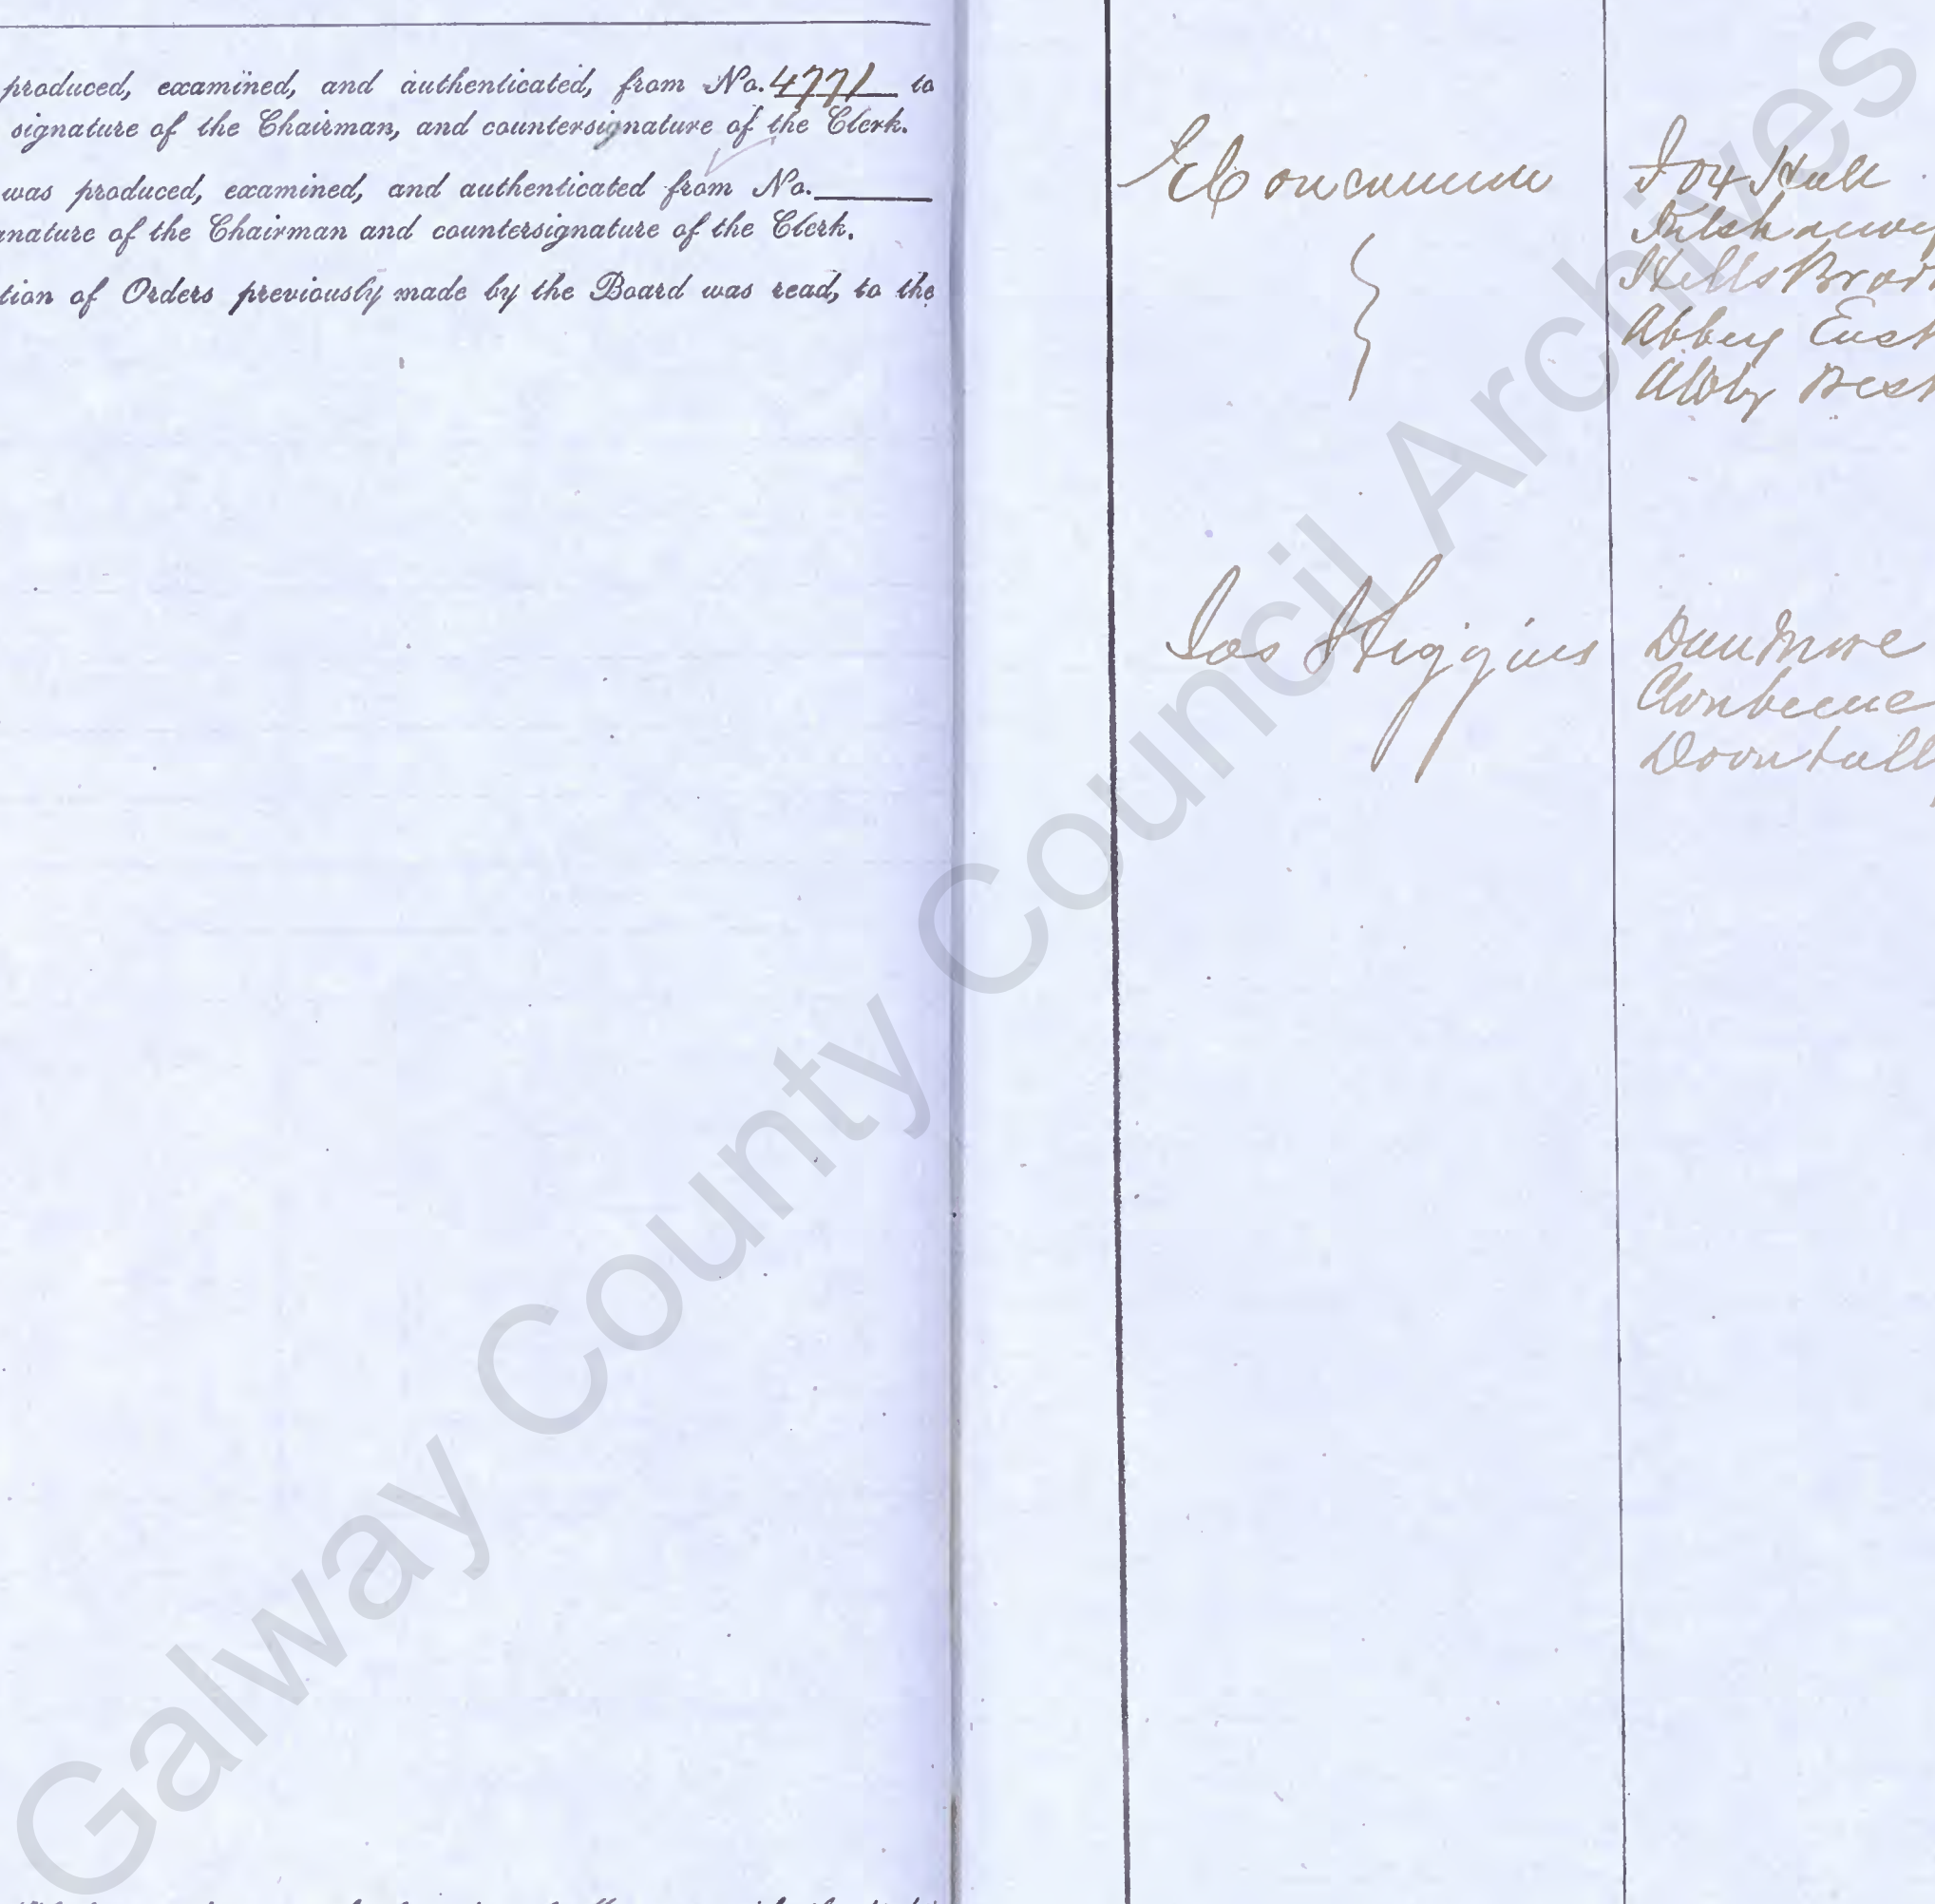 produced, examined, and authenticated, from No. 4771 to
signature of the Chairman, and countersignature of the Clerk.
was produced, examined, and authenticated from No.
nature of the Chairman and countersignature of the Clerk.
tion of Orders previously made by the Board was read, to the
E Concannon
Fox Hall
Kilshanvy
Hills Brook
Abbey East
Abby West
Jas Higgins
Dunmore
Clonberne
Doonbally
Galway County Council Archives